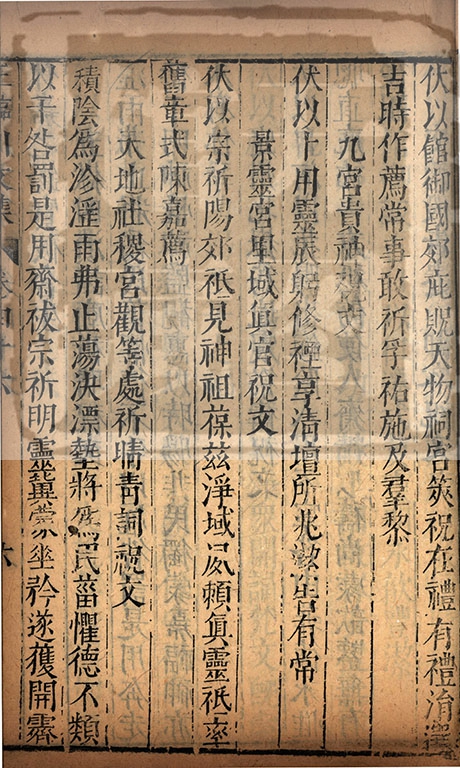 伏以館御國郊庇貺天物祠宮筴祝在禮有禮消
吉時作薦常事敢祈孚祐施及羣黎
九宮貴神祝文
伏以卜用靈辰躬修禋享清壇所兆潔告有常
景靈宮里域眞官祝文
伏以宗祈陽郊祇見神祖葆茲淨域夙賴眞靈祇率
舊章式陳嘉薦
天地社稷宮觀等處祈晴青詞祝文
積陰爲沴淫雨弗止蕩決漂墊將爲民菑懼德不類
以干咎罰是用齋祓宗祈明靈冀蒙坐矜遂獲開霽
王臨川文集 卷四十六 六